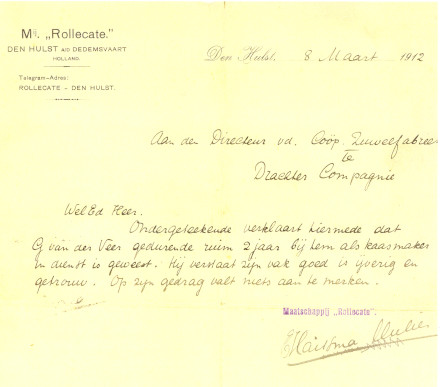 Mij. „Rollecate."
DEN HULST a/d DEDEMSVAART
HOLLAND.
Telegram-Adres:
ROLLECATE - DEN HULST.
Den Hulst. 8 Maart 1912
Aan den Directeur vd. Coöp. Zuivelfabriek
te
Drachter Compagnie
WelEd Heer.
Ondergeteekende verklaart hiermede dat
G van der Veer gedurende ruim 2 jaar bij hem als kaasmaker
in dienst is geweest. Hij verstaat zijn vak goed is ijverig en
getrouw. Op zijn gedrag valt niets aan te merken.
Maatschappij „Rollecate".
Haitsma Mulier